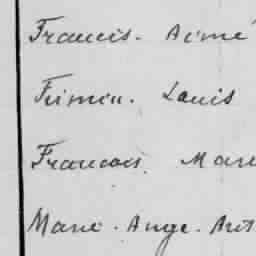 Francis. Aimé
Firmin. Louis
Francois. Mari
Marie. Ange. Art